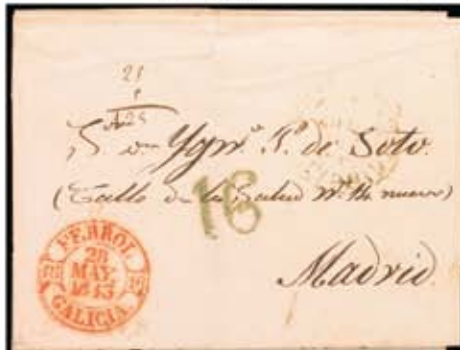 21
S. Dn Ygnº Pº de Soto.
(Calle de la Salud nº 14 nuevo)
16
Madrid
FERROL
28
MAY.
1843
GALICIA